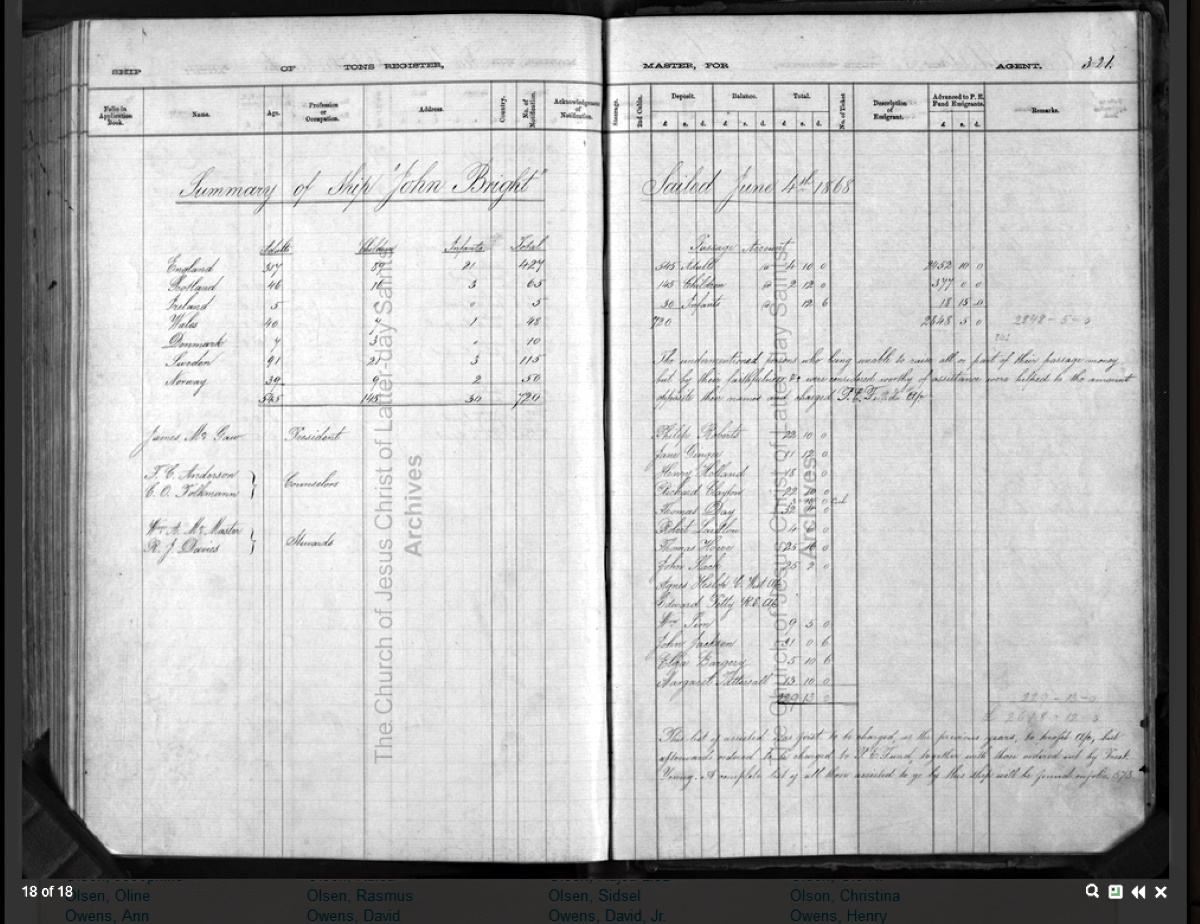 SHIP OF TONS REGISTER,
Folio in Application Book. Name. Age. Profession or Occupation. Address. Country. No. of Notification. Acknowledgment of Notification.
Summary of Ship "John Bright"
Adults Children Infants Total
England 317 89 21 427
Scotland 46 16 3 65
Ireland 5 0 5
Wales 40 7 1 48
Denmark 7 3 0 10
Sweden 91 21 3 115
Norway 39 9 2 50
545 145 30 720
James McGaw President
T. C. Anderson
C. O. Folkmann Counselors
Wm A. McMaster
R. J. Davies Stewards
MASTER, FOR AGENT. 321.
Steerage. 2nd Cabin. Deposit. Balance. Total. No. of Ticket Description of Emigrant. Advanced to P. E. Fund Emigrants. Remarks.
£ s. d. £ s. d. £ s. d. £ s. d.
Sailed June 4th 1868
Passage Account
545 Adults @ 4 10 0 2452 10 0
145 Children @ 2 12 0 377 0 0
30 Infants @ 12 6 18 15 0
720 2848 5 0 2848-5-0
The undermentioned persons who being unable to raise all or part of their passage money
but by their faithfulness &c were considered worthy of assistance were helped to the amount
opposite their names and charged P. E. F. a/c
Philip Roberts 22 10 0
Jane Ginger 11 12 0
Henry Holland 18 0
Richard Clayton 22 10 0
Thomas Day 32 0
Robert 4 0
Thomas 25 0
John 25 2 0
Agnes
Edward
Wm Sim 9 5 0
John Jackson 31 0 6
Eliza 5 10 6
Margaret Tattersall 13 10 0
229 13 0 229-13-0
£ 2618-12-0
This list of assisted was first to be charged, as the previous years, to profit a/c, but
afterwards ordered to be charged to P. E. Fund, together with those ordered out by Prest.
Young. A complete list of all those assisted to go by this ship will be found on folio 573
The Church of Jesus Christ of Latter-day Saints
Archives
The Church of Jesus Christ of Latter-day Saints
Archives
18 of 18
Olsen, Oline Olsen, Rasmus Olsen, Sidsel Olsen, Christina
Owens, Ann Owens, David Owens, David, Jr. Owens, Henry